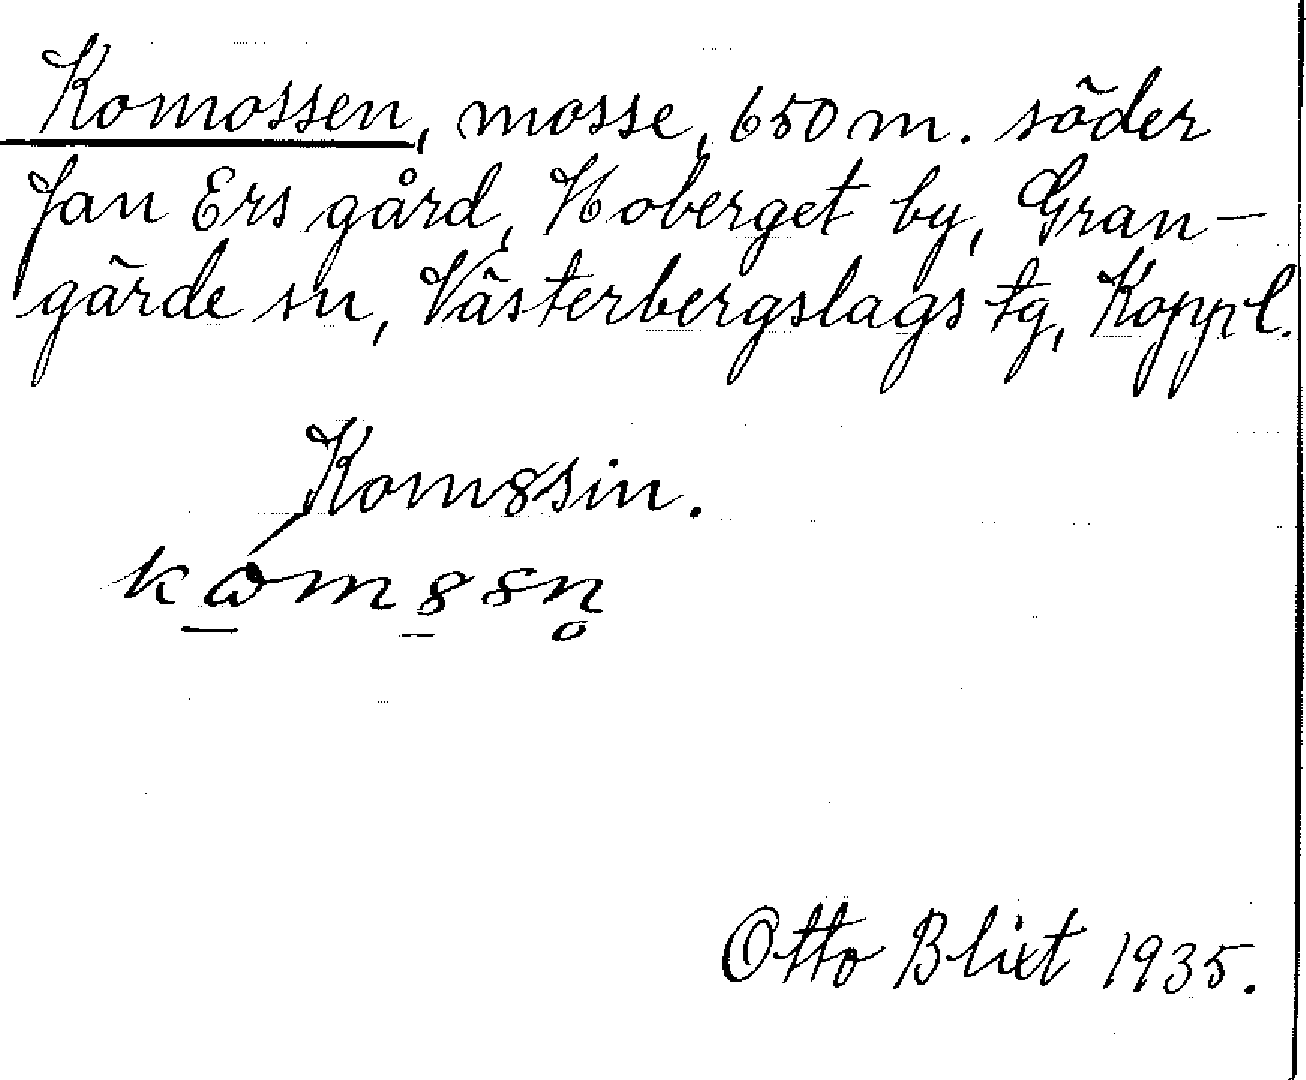 Komossen, mosse, 650 m. söder
Jan Ers gård, Hoberget by, Gran-
gärde sn, Västerbergslags tg, Koppl.
Kom8sin.
Otto Blixt 1935.